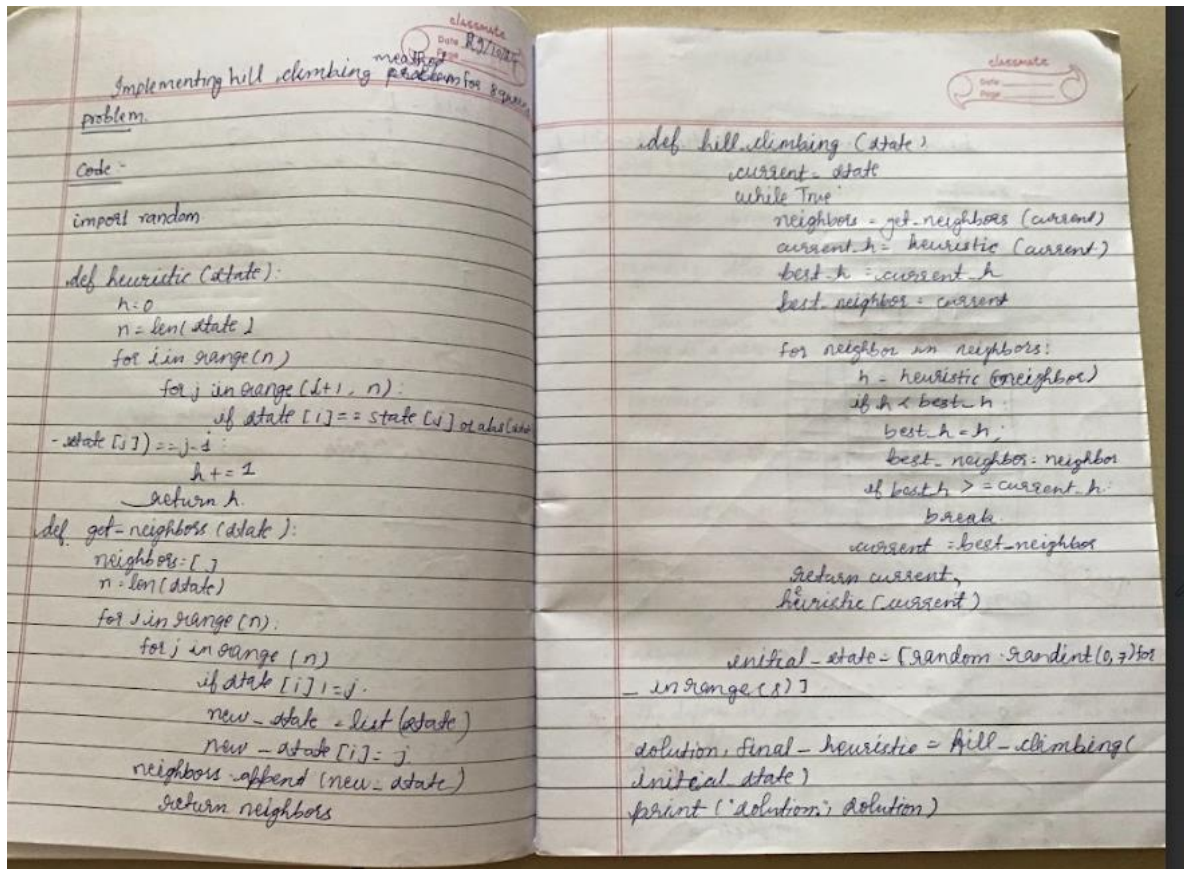 classmate
Date 29/10/24
Page
Implementing hill climbing method for 8 queens
problem.
Code -
import random
def heuristic (state):
h=0
n = len( state )
for i in range(n)
for j in range (i+1, n):
if state [i] == state [j] or abs(state
- state [j]) == j-i :
h += 1
return h.
def get-neighbors (state ):
neighbors = [ ]
n = len (state)
for i in range (n):
for j in range (n)
if state [i] != j.
new _ state = list (state)
new _ state [i] = j
neighbors append (new _ state )
return neighbors
classmate
Date
Page
def hill climbing (state)
current = state
while True
neighbors = get-neighbors (current)
current_h = heuristic (current)
best_h = current_h
best_neighbor = current
for neighbor in neighbors:
h = heuristic (neighbor)
if h < best_h :
best_h = h;
best_ neighbor = neighbor
if best_h > = current_h :
break
current = best_neighbor
return current,
heuristic (current)
initial _ state = [random . randint (0, 7) for
_ in range (8) ]
solution, final _ heuristic = hill _ climbing (
initial _ state )
print ( "solution", solution )